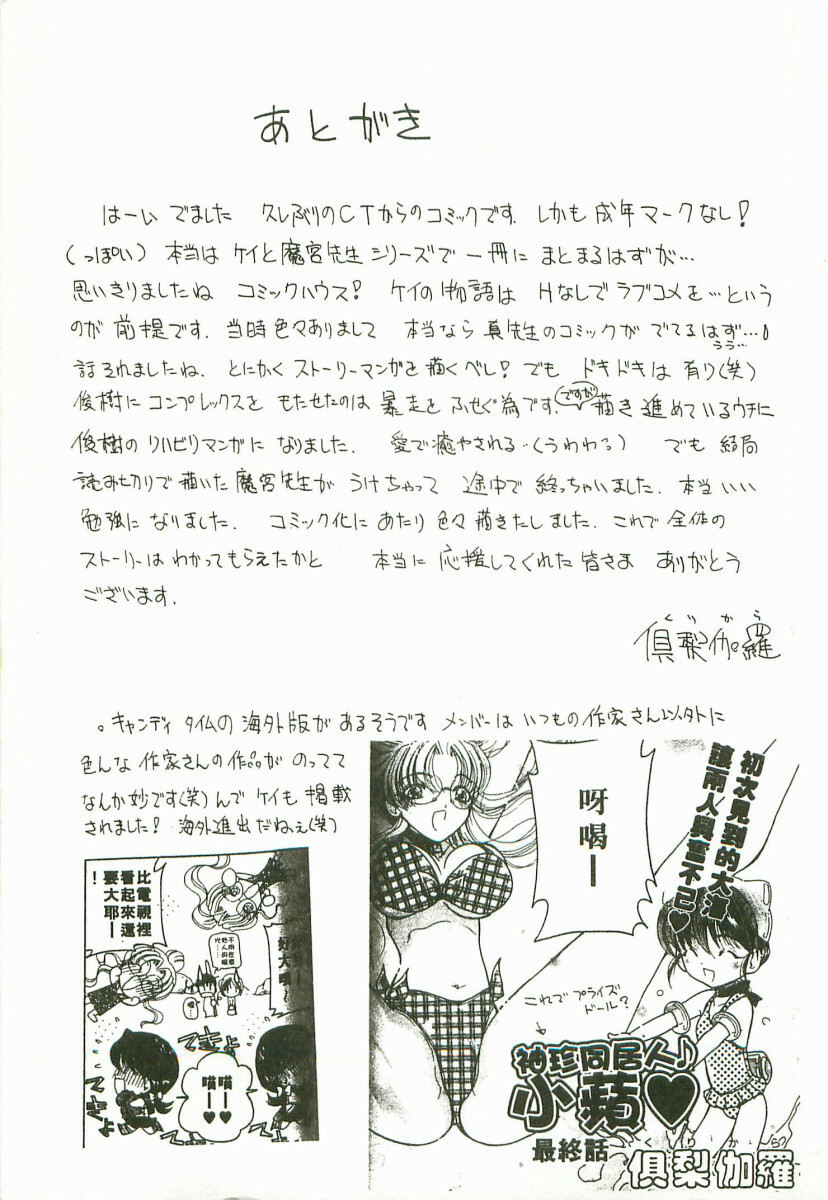 あとがき
はーい でました 久しぶりのCTからのコミックです. しかも 成年マークなし!
(っぽい) 本当は ケイと魔宮先生 シリーズで 一冊に まとまるはずが…
思いきりましたね コミックハウス! ケイの物語は Hなしでラブコメを…という
のが 前提です. 当時色々ありまして 本当なら 真先生のコミックが でてるはず…
うう…
話それましたね. とにかく ストーリーマンガを描くべし! でも ドキドキは 有り(笑)
俊樹に コンプレックスを もたせたのは 暴走を ふせぐ為です. ですが 描き進めているウチに
俊樹の リハビリマンガに なりました. 愛で癒やされる‥(うわわっ) でも 結局
読み切りで 描いた 魔宮先生が うけちゃって 途中で 終っちゃいました. 本当 いい
勉強に なりました. コミック化にあたり 色々 描きたしました. これで 全体の
ストーリーは わかってもらえたかと 本当に 応援してくれた 皆さま ありがとう
ございます.
くりから
倶梨伽羅
。キャンディ タイムの 海外版が あるそうです メンバーは いつもの 作家さん以外に
色んな 作家さんの 作品が のってて
なんか妙です(笑) んで ケイも 掲載
されました! 海外進出だねぇ(笑)
初次見到的大海
讓兩人興奮不已♥
呀喝ー
これで プライズ
ドール?
袖珍同居人♪
小蘋♥
最終話
くりから
倶梨伽羅
好大哦ー
比電視裡
看起來還
要大耶ー
!
不用在意
他人的眼
光…
てきょ
てきょ
てきょ
喵ー♥
喵ー♥